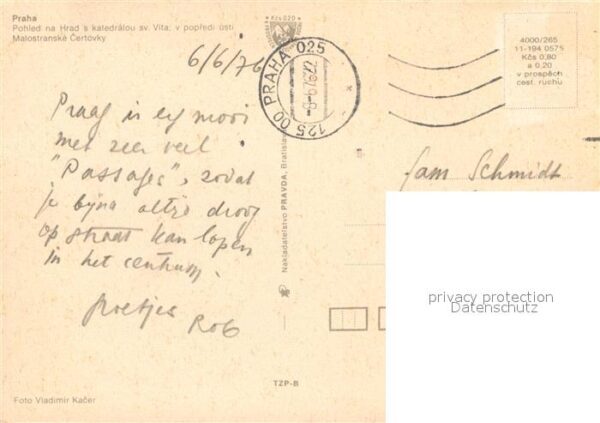 Praha
Pohled na Hrad s katedrálou sv. Víta, v popředí ústí
Malostranské Čertovky
Kčs 0,20
6/6/76
Praag is erg mooi
met zeer veel
"Passages", zodat
je bijna altijd droog
op straat kan lopen
in het centrum.
Groetjes
Rob
Foto Vladimír Kačer
Nakladatelství PRAVDA, Bratislava
TZP-B
125 00 PRAHA 025
-6.6.76-22
4000/265
11-194 0575
Kčs 0,80
a 0,20
v prospěch
cest. ruchu
Fam Schmidt
privacy protection
Datenschutz